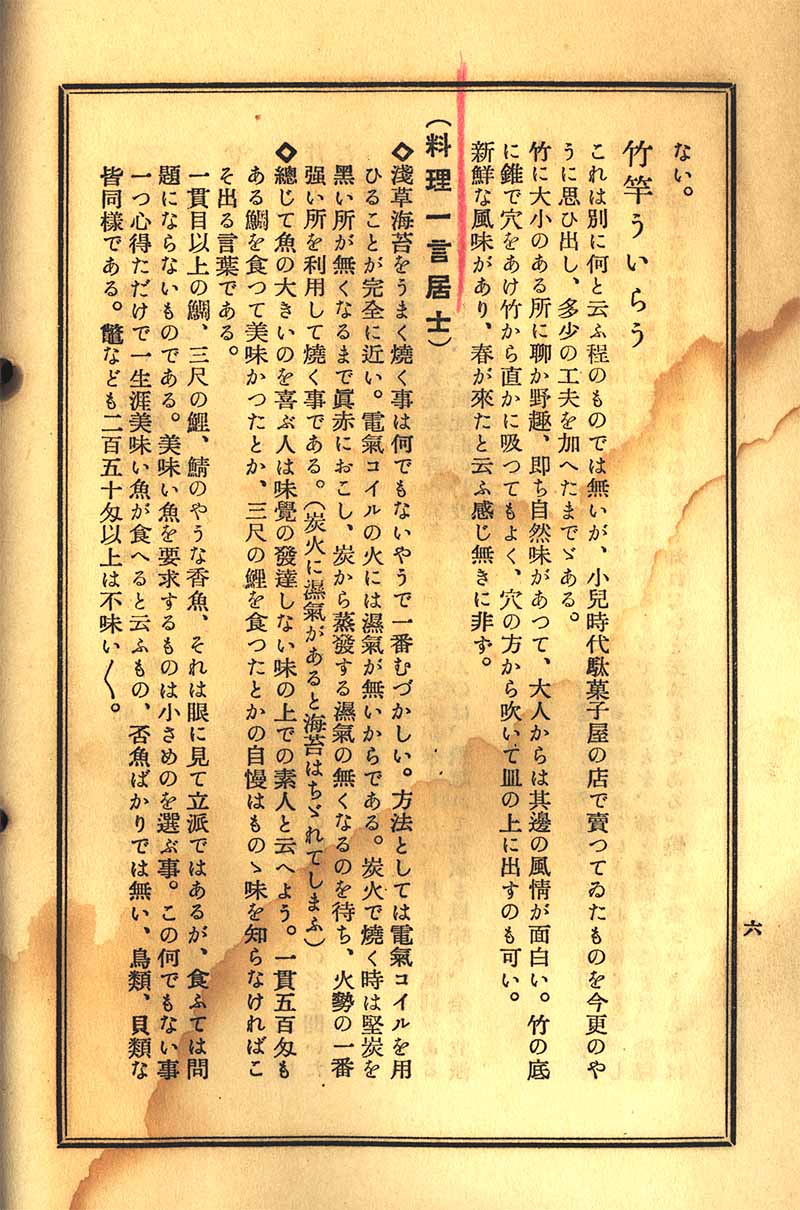 ない。
竹竿ういらう
これは別に何と云ふ程のものでは無いが、小兒時代駄菓子屋の店で賣つてゐたものを今更のや
うに思ひ出し、多少の工夫を加へたまでゞある。
竹に大小のある所に聊か野趣、即ち自然味があつて、大人からは其邊の風情が面白い。竹の底
に錐で穴をあけ竹から直かに吸つてもよく、穴の方から吹いて皿の上に出すのも可い。
新鮮な風味があり、春が來たと云ふ感じ無きに非ず。
(料理一言居士)
◇淺草海苔をうまく燒く事は何でもないやうで一番むづかしい。方法としては電氣コイルを用
ひることが完全に近い。電氣コイルの火には濕氣が無いからである。炭火で燒く時は堅炭を
黑い所が無くなるまで眞赤におこし、炭から蒸發する濕氣の無くなるのを待ち、火勢の一番
强い所を利用して燒く事である。(炭火に濕氣があると海苔はちゞれてしまふ)
◇總じて魚の大きいのを喜ぶ人は味覺の發達しない味の上での素人と云へよう。一貫五百匁も
ある鯛を食つて美味かつたとか、三尺の鯉を食つたとかの自慢はものゝ味を知らなければこ
そ出る言葉である。
一貫目以上の鯛、三尺の鯉、鯖のやうな香魚、それは眼に見て立派ではあるが、食ふては問
題にならないものである。美味い魚を要求するものは小さめのを選ぶ事。この何でもない事
一つ心得ただけで一生涯美味い魚が食へると云ふもの、否魚ばかりでは無い、鳥類、貝類な
皆同樣である。鼈なども二百五十匁以上は不味い〱。
六